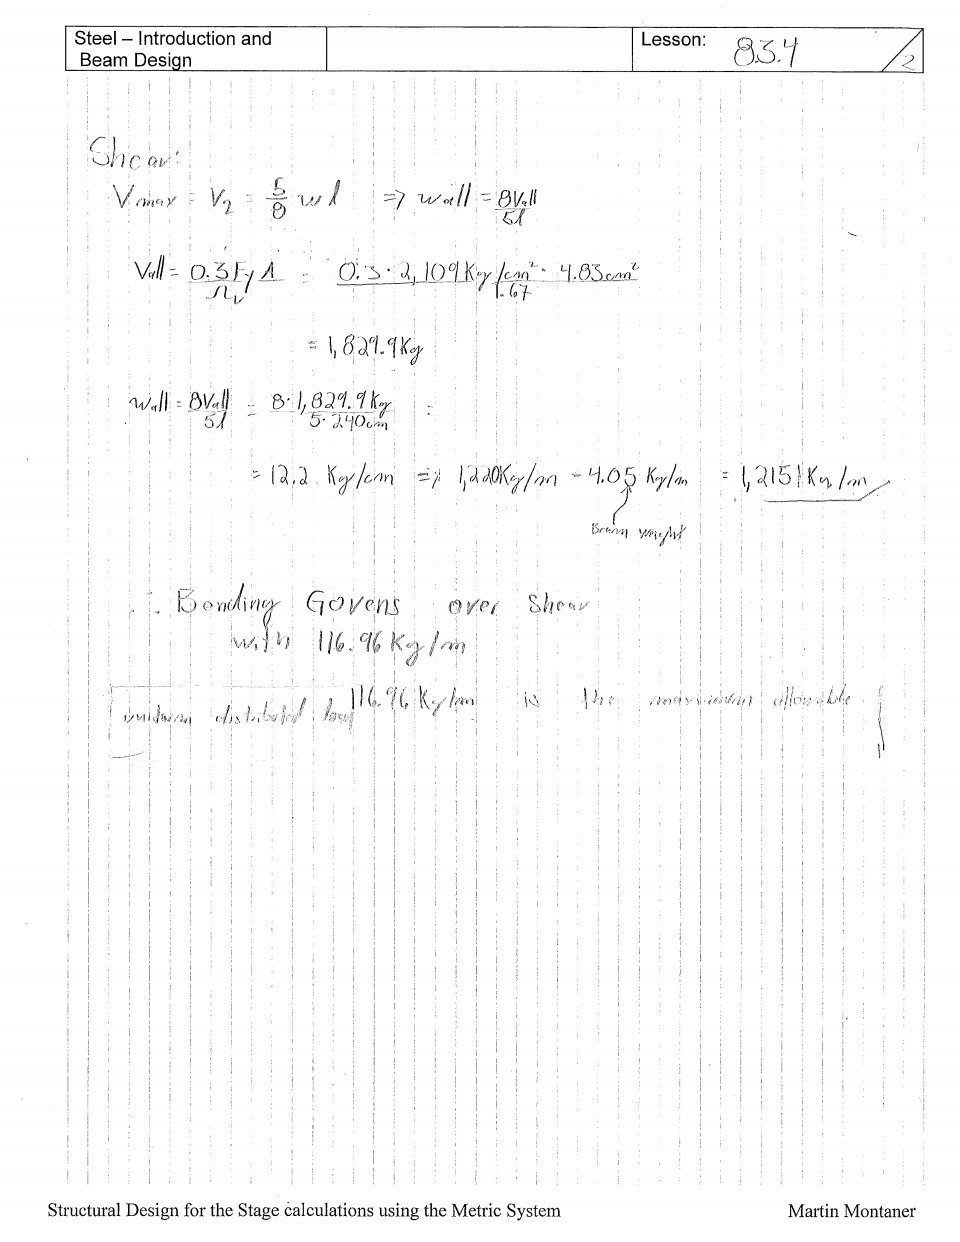 Steel – Introduction and
Beam Design
Lesson: 8.3.4 /2
Shear:
Vmax = V2 = 5/8 wl => wall = 8Vall/5l
Vall = 0.3FyA/Ωv = 0.3 · 2,109Kg/cm² · 4.83cm²/1.67
= 1,829.9Kg
wall = 8Vall/5l = 8·1,829.9Kg/5·240cm =
= 12.2 Kg/cm => 1,220Kg/m - 4.05 Kg/m = 1,2151Kg/m
Beam weight
∴ Bending Govens over Shear
with 116.96 Kg/m
116.96 Kg/m is the maximum allowable
uniform distributed load
Structural Design for the Stage calculations using the Metric System
Martin Montaner